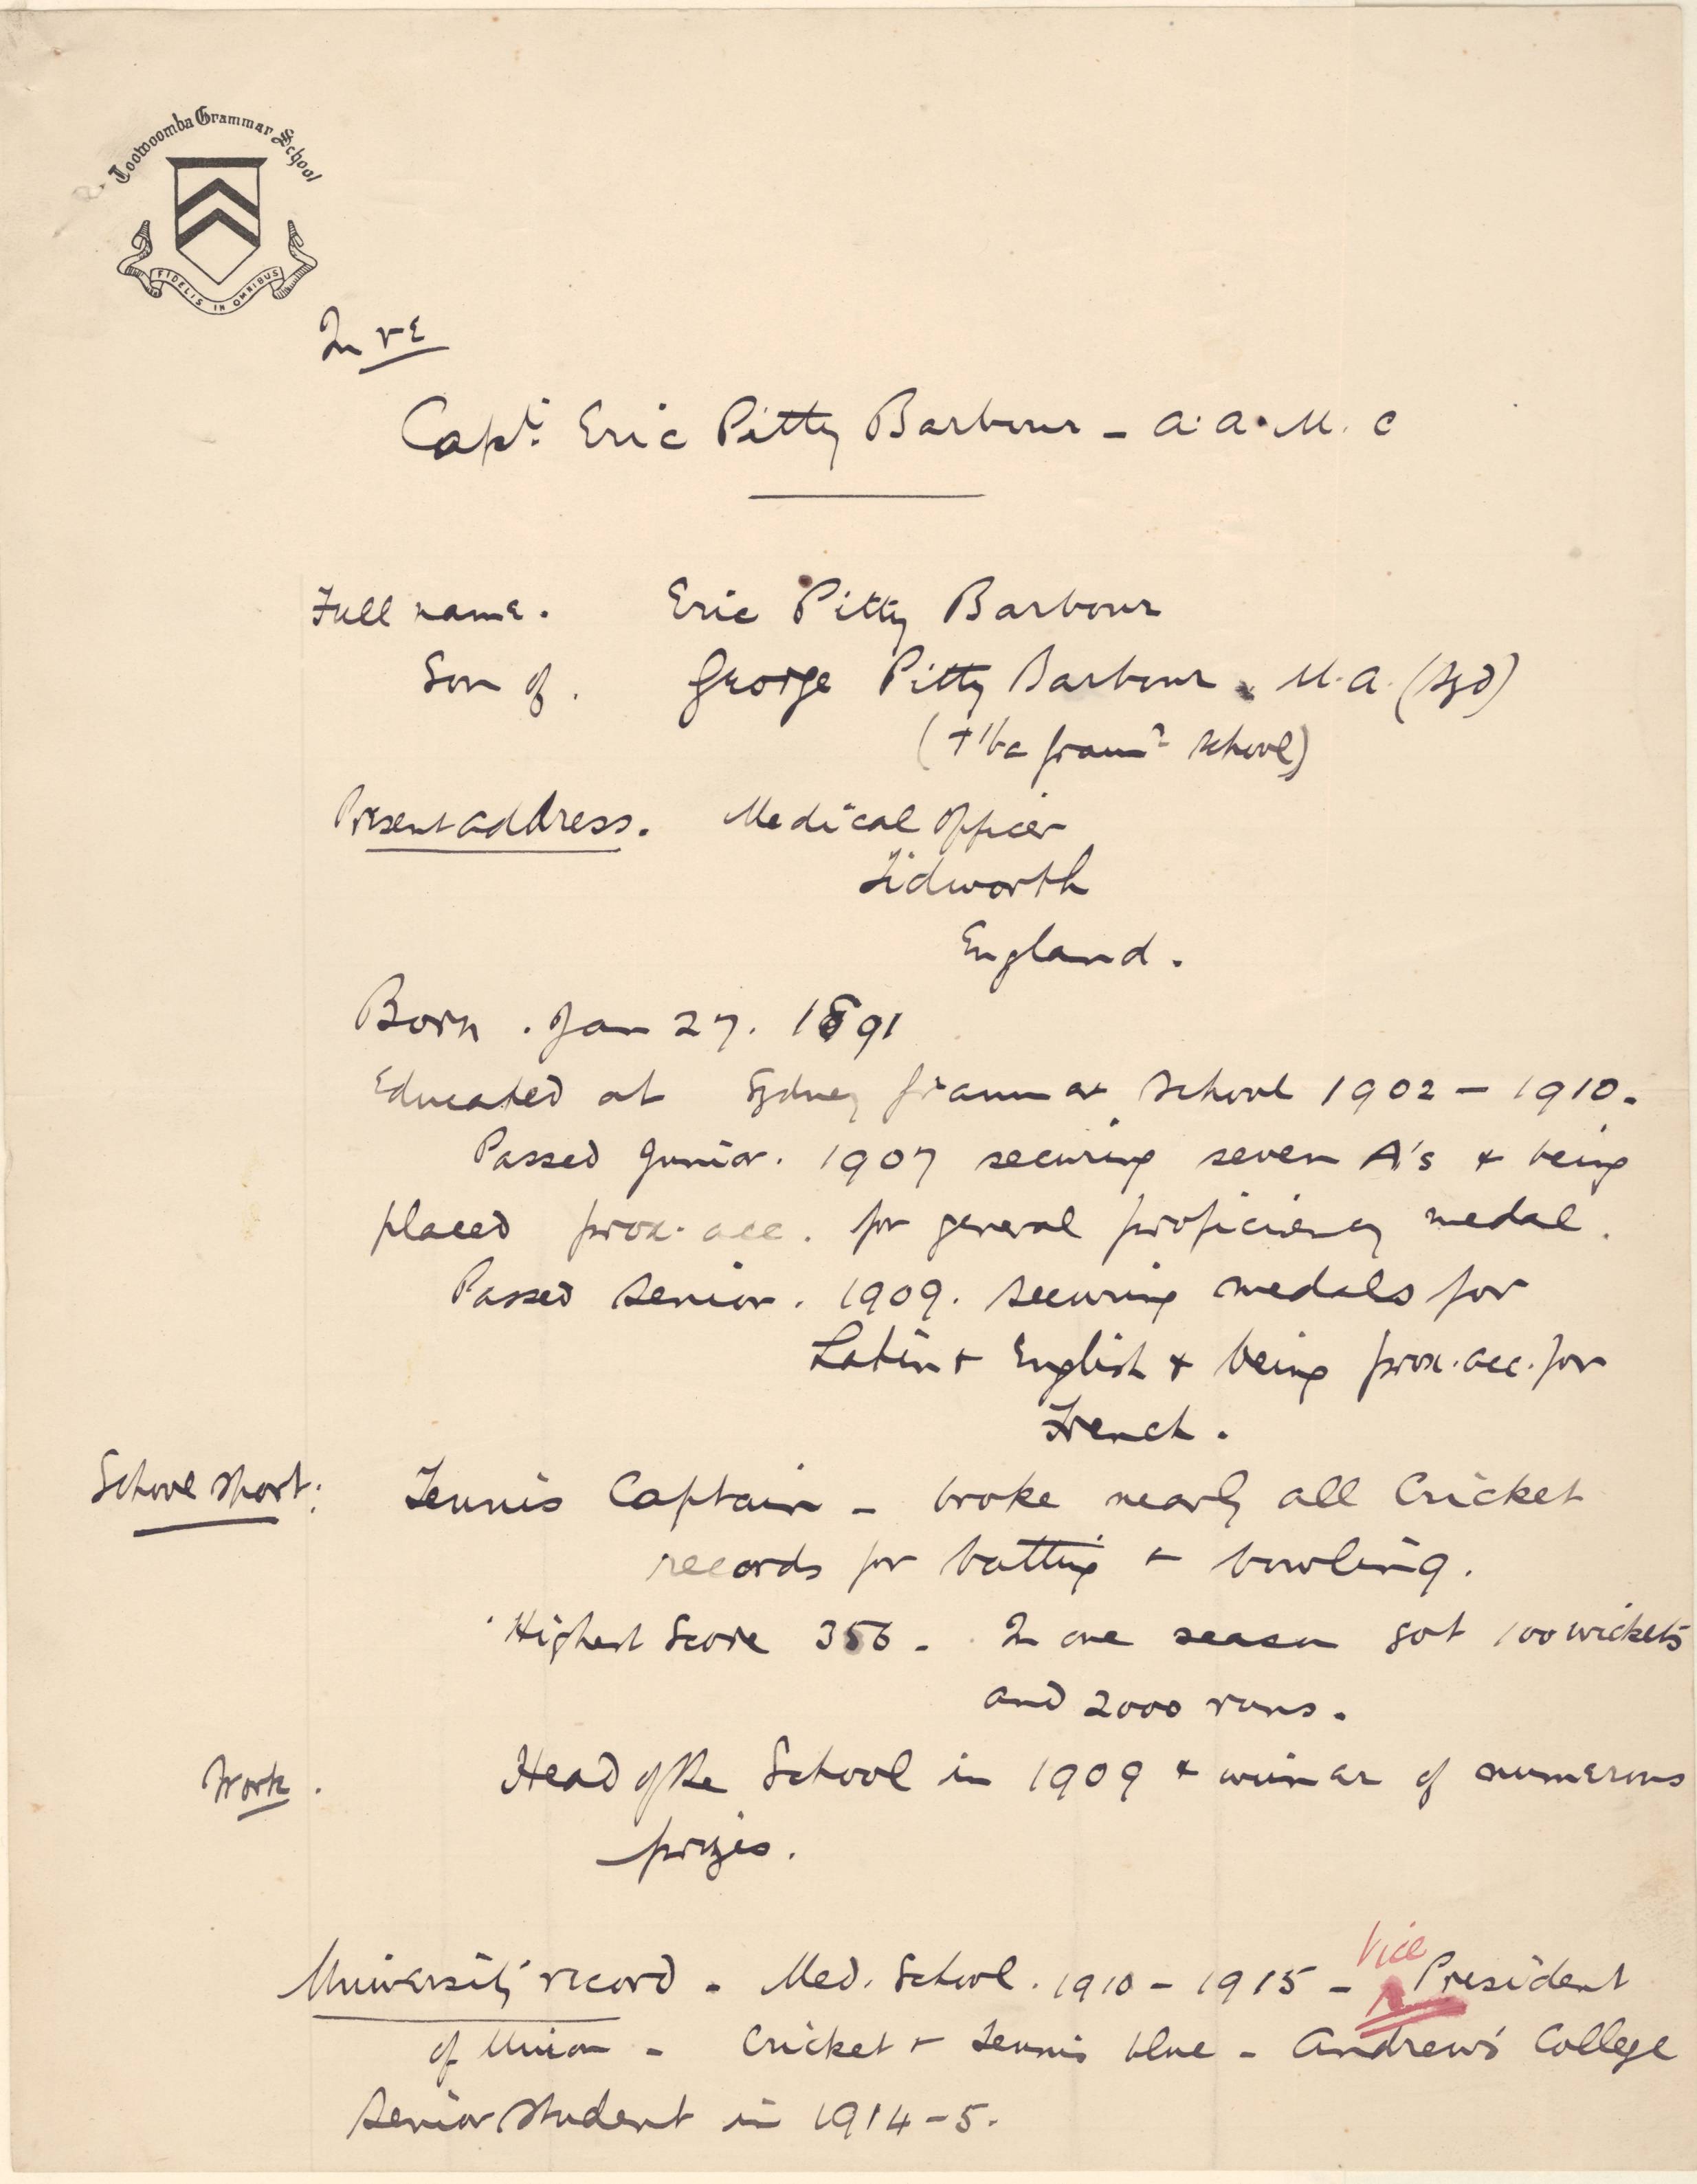 Toowoomba Grammar School
FIDELIS IN OMNIBUS
In re
Capt. Eric Pitty Barbour - A.A.M.C
Full name. Eric Pitty Barbour
Son of. George Pitty Barbour. M.A. (Syd)
(T'ba Gramr School)
Present address. Medical Officer
Tidworth
England.
Born. Jan 27. 1891
Educated at Sydney Grammar School 1902 - 1910.
Passed Junior. 1907 securing seven A's + being
placed prox. acc. for general proficiency medal.
Passed Senior. 1909. securing medals for
Latin + English + being prox. acc. for
French.
School sport: Tennis Captain - broke nearly all Cricket
records for batting + bowling.
Highest Score 356 - In one season got 100 wickets
and 2000 runs.
Work. Head of the School in 1909 + winner of numerous
prizes.
Vice
University record - Med. School. 1910 - 1915 - President
of Union - Cricket + Tennis blue - Andrew's College
Senior Student in 1914-5.